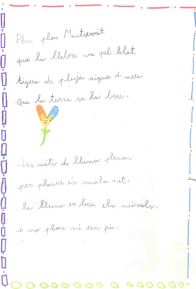 Plou plou Montserrat
que la llebre va pel blat
aigua de pluja aigua d neu
que la terra se la beu.
Des nits de lluna plena
per ploure és mala nit.
la lluna es beu els núvols
i no plou ni un pic.